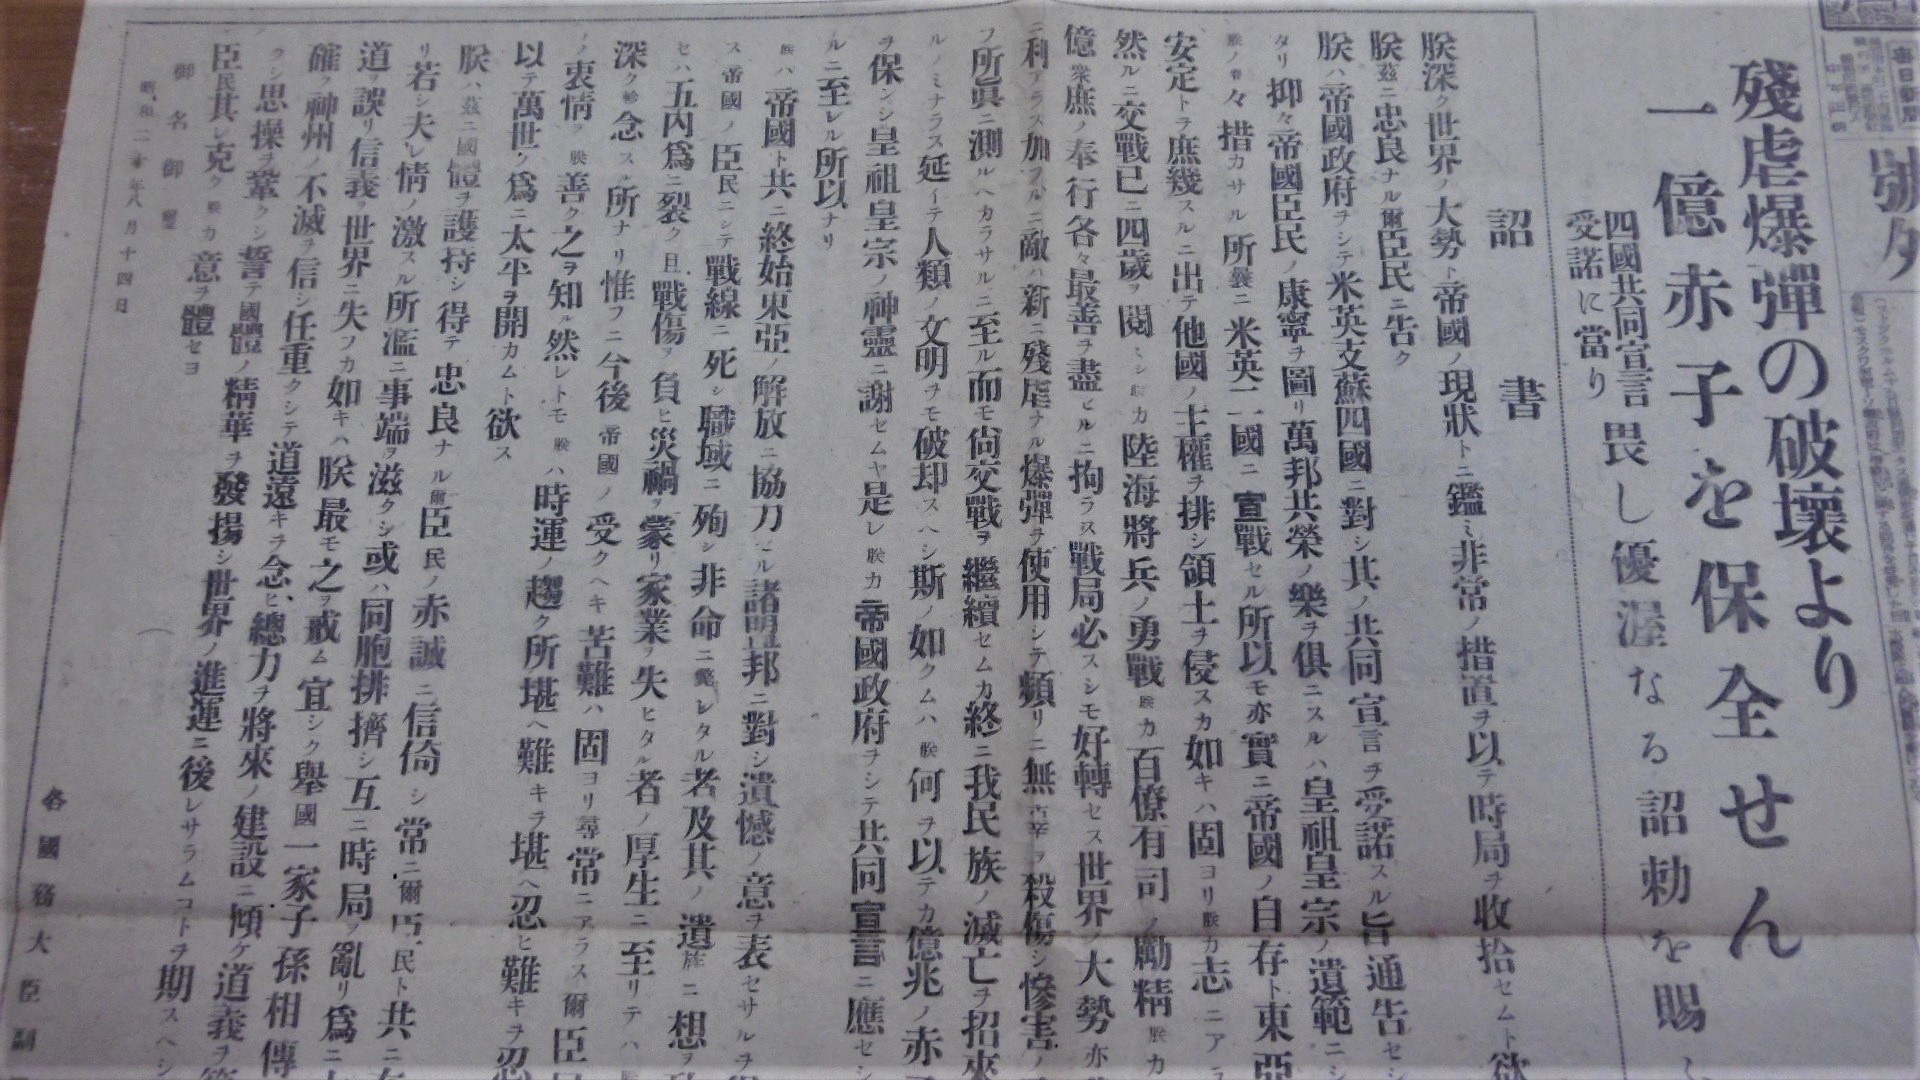 號外
殘虐爆彈の破壞より
一億赤子を保全せん
四國共同宣言
受諾に當り
畏し優渥なる詔勅を賜ふ
詔書
朕深ク世界ノ大勢ト帝國ノ現狀トニ鑑ミ非常ノ措置ヲ以テ時局ヲ收拾セムト欲
朕茲ニ忠良ナル爾臣民ニ告ク
朕ハ帝國政府ヲシテ米英支蘇四國ニ對シ其ノ共同宣言ヲ受諾スル旨通告セシ
タリ抑々帝國臣民ノ康寧ヲ圖リ萬邦共榮ノ樂ヲ俱ニスルハ皇祖皇宗ノ遺範ニシ
朕ノ眷々措カサル所曩ニ米英二國ニ宣戰セル所以モ亦實ニ帝國ノ自存ト東亞
安定トヲ庶幾スルニ出テ他國ノ主權ヲ排シ領土ヲ侵スカ如キハ固ヨリ朕カ志ニアラ
然ルニ交戰已ニ四歲ヲ閱ミシ朕カ陸海將兵ノ勇戰朕カ百僚有司ノ勵精朕カ
億衆庶ノ奉行各々最善ヲ盡セルニ拘ラス戰局必スシモ好轉セス世界ノ大勢亦
ニ利アラス加フルニ敵ハ新ニ殘虐ナル爆彈ヲ使用シテ頻リニ無辜ヲ殺傷シ慘害ノ
フ所眞ニ測ルヘカラサルニ至ル而モ尙交戰ヲ繼續セムカ終ニ我民族ノ滅亡ヲ招來
ルノミナラス延イテ人類ノ文明ヲモ破却スヘシ斯ノ如クムハ朕何ヲ以テカ億兆ノ赤
ヲ保シ皇祖皇宗ノ神靈ニ謝セムヤ是レ朕カ帝國政府ヲシテ共同宣言ニ應セシ
ルニ至レル所以ナリ
朕ハ帝國ト共ニ終始東亞ノ解放ニ協力セル諸盟邦ニ對シ遺憾ノ意ヲ表セサルヲ
ス帝國ノ臣民ニシテ戰線ニ死シ職域ニ殉シ非命ニ斃レタル者及其ノ遺族ニ想ヲ
セハ五內爲ニ裂ク且戰傷ヲ負ヒ災禍ヲ蒙リ家業ヲ失ヒタル者ノ厚生ニ至リテハ
深ク軫念スル所ナリ惟フニ今後帝國ノ受クヘキ苦難ハ固ヨリ尋常ニアラス爾臣民
ノ衷情ヲ朕善ク之ヲ知ル然レトモ朕ハ時運ノ趨ク所堪ヘ難キヲ堪ヘ忍ヒ難キヲ忍
以テ萬世ノ爲ニ太平ヲ開カムト欲ス
朕ハ茲ニ國體ヲ護持シ得テ忠良ナル爾臣民ノ赤誠ニ信倚シ常ニ爾臣民ト共ニ
リ若シ夫レ情ノ激スル所濫ニ事端ヲ滋クシ或ハ同胞排擠シ互ニ時局ヲ亂リ爲ニ
道ヲ誤リ信義ヲ世界ニ失フカ如キハ朕最モ之ヲ戒ム宜シク擧國一家子孫相傳
確ク神州ノ不滅ヲ信シ任重クシテ道遠キヲ念ヒ總力ヲ將來ノ建設ニ傾ケ道義ヲ
クシ思操ヲ鞏クシ誓テ國體ノ精華ヲ發揚シ世界ノ進運ニ後レサラムコトヲ期スヘシ
臣民其レ克ク朕カ意ヲ體セヨ
御名御璽
昭和二十年八月十四日
各國務大臣副